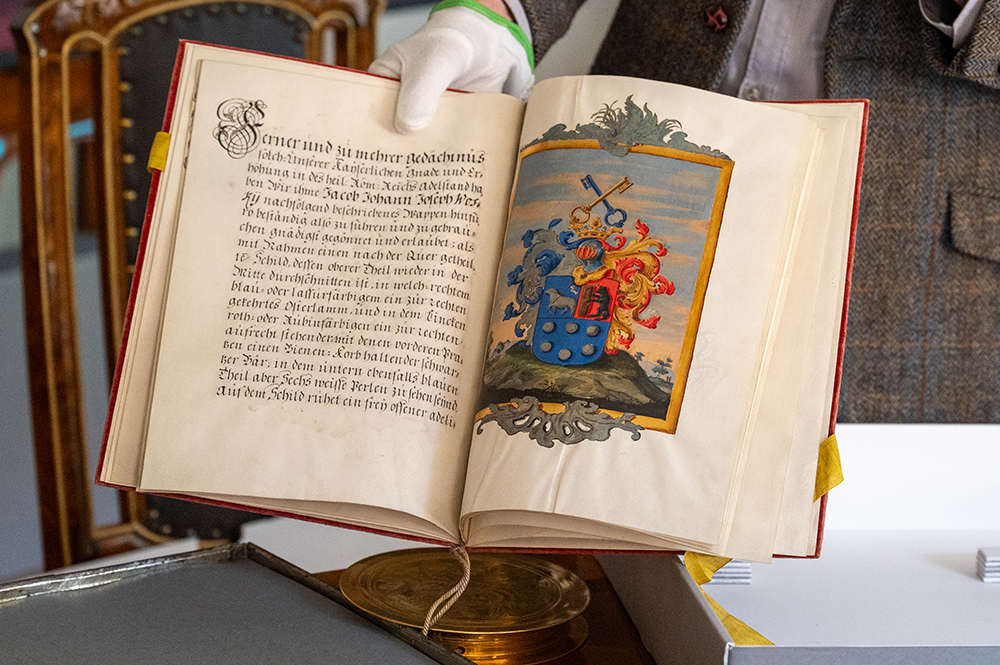 Ferner und zu mehrer gedächtnus
solch-Unserer Kaÿserlichen Gnad und Er
höhung in des heil: Röm: Reichs adelstand ha
ben Wir ihme Jacob Johann Joseph
nachfolgend beschriebenes Wappen hinfü
ro beständig also zu führen und zu gebrau
chen gnädigst gegönnet und erlaubet: als
mit Nahmen einen nach der Quer getheil
te Schild, dessen oberer Theil wieder in der
Mitte durchschnitten ist, in welch-rechtem
blau- oder lassurfärbigem ein zur rechten
gekehrtes Osterlamm, und in dem Lincken
roth- oder Rubinfärbigen ein zur rechten
aufrecht stehender mit denen vorderen Pra
zen einen Bienen-Korb haltender schwar
zer Bär; in dem untern ebenfalls blauen
Theil aber Sechs weisse Perlen zu sehen seÿnd
Auf dem Schild ruhet ein freÿ offener adeli